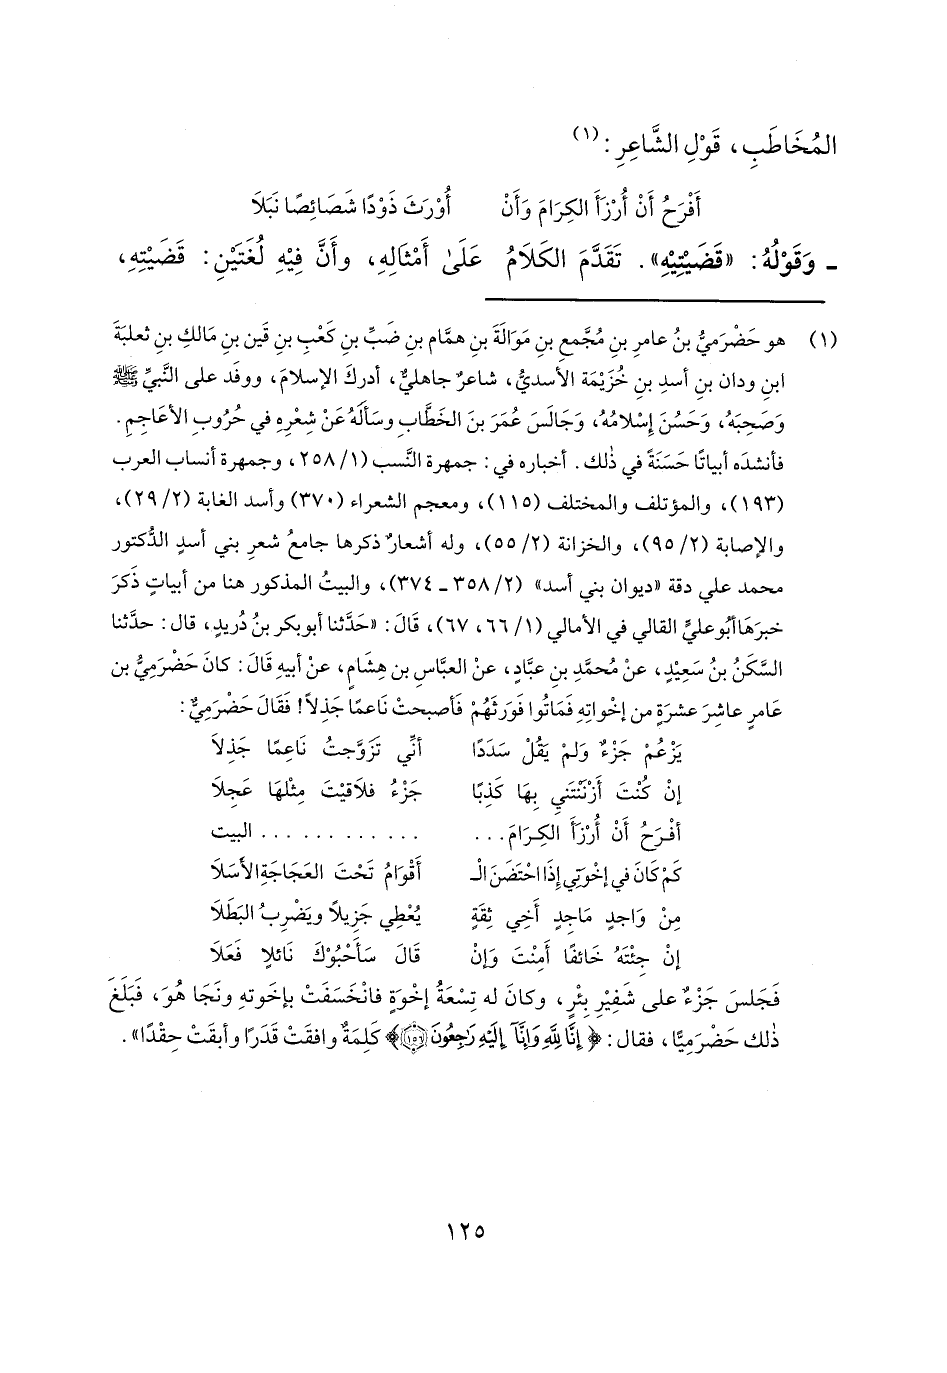 المُخَاطَبِ، قَوْلِ الشَّاعِرِ:(١)
أَفْرَحُ أَنْ أُرْزَأَ الكِرَامَ وَأَنْ أُوْرَثَ ذَوْدًا شَصَائِصًا نَبَلَا
ـ وَقَوْلُهُ: «قَضَيْتِيْهِ». تَقَدَّمَ الكَلَامُ عَلَىٰ أَمْثَالِهِ، وأَنَّ فِيْهِ لُغَتَيْنِ: قَضَيْتِهِ،
(١) هو حَضْرَميُّ بنُ عامرِ بنِ مُجَّمعِ بنِ مَوَالَةَ بنِ همَّام بنِ ضَبِّ بنِ كَعْبِ بنِ قين بنِ مَالكِ بنِ ثعلبَةَ
ابنِ ودان بنِ أسدِ بنِ خُزَيْمَة الأسديُّ، شاعرٌ جاهليٌّ، أدركَ الإسلامَ، ووفَد على النَّبيِّ ﷺ
وَصَحِبَهُ، وَحَسُنَ إِسْلامُهُ، وَجَالَسَ عُمَرَ بنَ الخطَّابِ وسألَهُ عَنْ شِعْرِهِ في حُرُوبِ الأعَاجِمِ.
فأنشدَه أبياتًا حَسَنَةً في ذٰلك. أخباره في: جمهرة النَّسب (١/ ٢٥٨، وجمهرة أنساب العرب
(١٩٣)، والمؤتلف والمختلف (١١٥)، ومعجم الشعراء (٣٧٠) وأسد الغابة (٢/ ٢٩)،
والإصابة (٢/ ٩٥)، والخزانة (٢/ ٥٥)، وله أشعارٌ ذكرها جامعُ شعرِ بني أسدٍ الدُّكتور
محمد علي دقة «ديوان بني أسد» (٢/ ٣٥٨ ـ ٣٧٤)، والبيتُ المذكور هنا من أبياتٍ ذكرَ
خبرَهَا أبُو عليٍّ القالي في الأمالي (١/ ٦٦، ٦٧)، قَالَ: «حَدَّثنا أبوبكر بنُ دُريدٍ، قال: حدَّثنا
السَّكَنُ بنُ سَعِيْدٍ، عنْ مُحمَّدِ بنِ عبَّادٍ، عنْ العبَّاسِ بنِ هِشَامٍ، عنْ أبيهِ قَالَ: كانَ حَضْرَمِيُّ بن
عَامرٍ عاشِرَ عشرَةٍ من إخْوَاتِهِ فَمَاتُوا فَوَرِثَهُمْ فأصبحتْ نَاعمًا جَذِلاً! فَقَالَ حَضْرَمِيٌّ:
يَزْعُمْ جَزْءٌ وَلمْ يَقُلْ سَدَدًا أنِّي تَزَوَّجتُ نَاعِمًا جَذِلَا
إِنْ كُنْتَ أَزْنَنْتَنيِ بِهَا كَذِبًا جَزْءُ فلاَقيْتَ مِثْلهَا عَجِلَا
أفْرَحُ أنْ أُرْزَأَ الكِرَامَ... ............ البيت
كَمْ كَانَ في إخْوَتِي إِذَا احْتَضَنَ الْـ أَقْوَامُ تَحْتَ العَجَاجَةِ الأَسَلَا
مِنْ وَاجدٍ مَاجِدٍ أَخِي ثِقَةٍ يُعْطِي جَزِيلاً ويَضْرِبُ البَطَلَا
إنْ جِئْتَهُ خَائفًا أَمِنْتَ وَإِنْ قَالَ سَأَحْبُوْكَ نَائلاِ فَعَلَا
فَجَلسَ جَزْءٌ على شَفِيْرِ بِئْرٍ، وكانَ له تِسْعَةُ إخْوَةٍ فانْخَسَفَتْ بإخوتهِ ونَجَا هُوَ، فَبَلَغَ
ذٰلك حَضْرَمِيًّا، فقال: ﴿ إِنَّا لِلَّهِ وَإِنَّآ إِلَيْهِ رَٰجِعُونَ ١٥٦﴾ كَلِمَةٌ وافقَتْ قَدَرًا وأبقَتْ حِقْدًا».
١٢٥